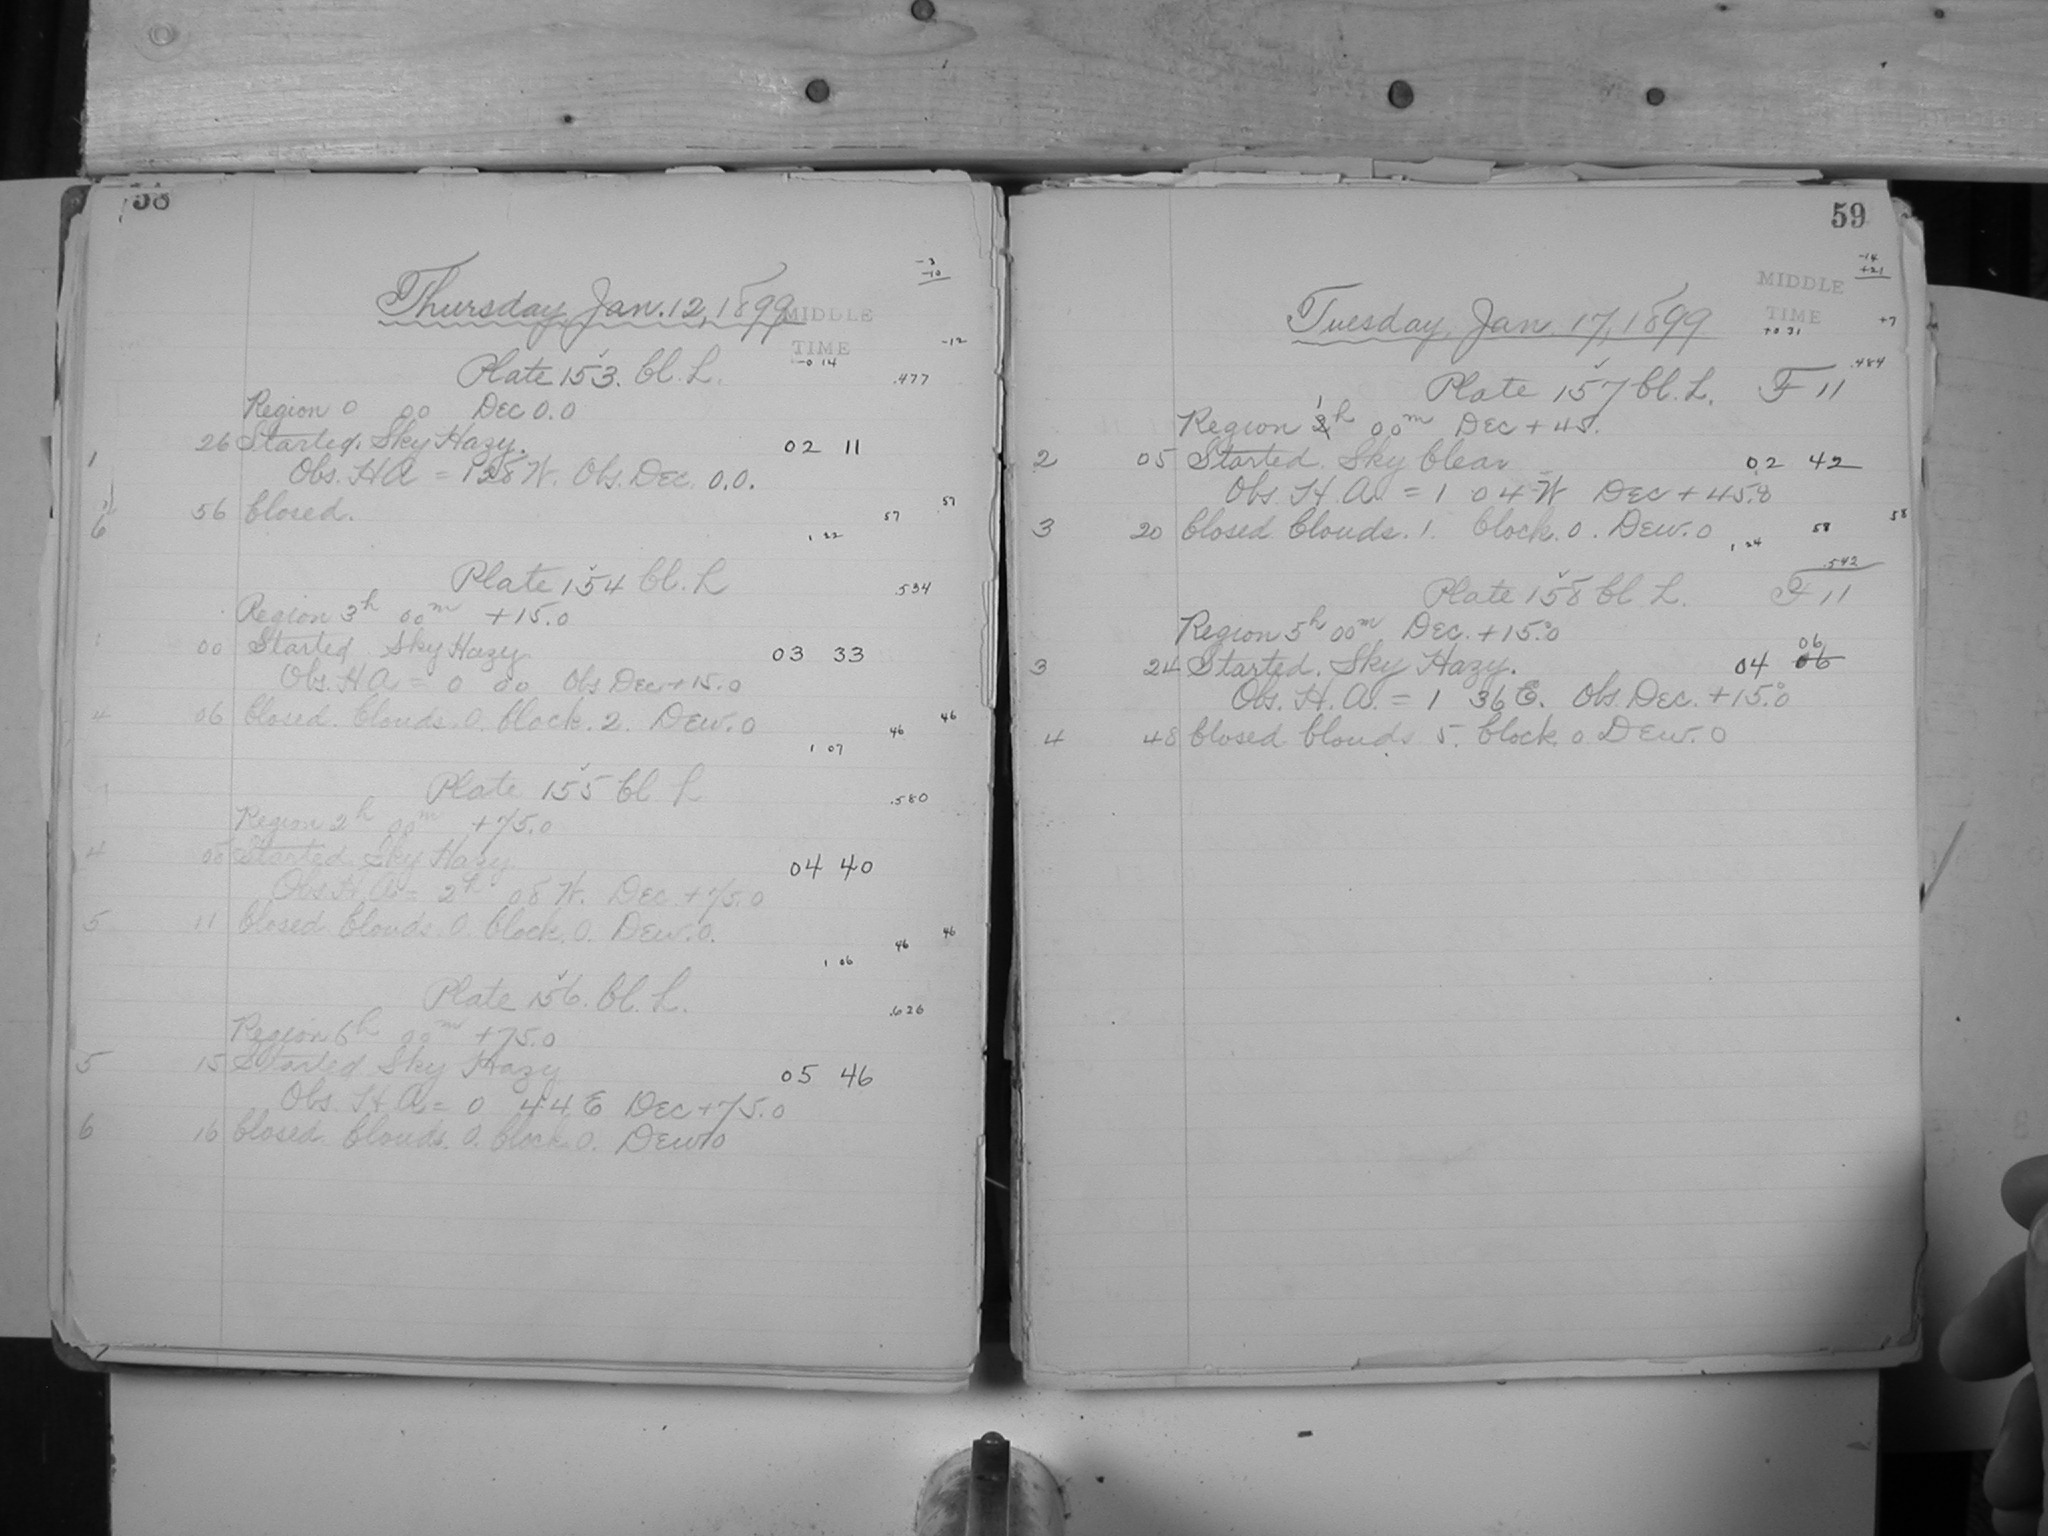 58
-3
-10
Thursday, Jan. 12, 1899
MIDDLE
TIME
-0 14
-12
Plate 153. Cl. L.
.477
Region 0 00 Dec 0.0
1 26 Started. Sky Hazy. 02 11
Obs. H A = 1 28 W. Obs. Dec. 0.0.
56 Closed. 57 57
6
1 22
Plate 154 Cl. L
.534
Region 3h 00m +15.0
00 Started. Sky Hazy. 03 33
Obs. H A = 0 00 Obs Dec +15.0
4 06 Closed. Clouds. 0. Clock. 2. Dew. 0 46 46
1 07
Plate 155 Cl L
.580
Region 2h 00m +75.0
4 Started Sky Hazy 04 40
Obs. H. A = 2h 08 W. Dec. +75.0
5 11 Closed. Clouds. 0. Clock. 0. Dew. 0. 46 46
1 06
Plate 156. Cl. L.
.626
Region 6h 00m +75.0
5 15 Started Sky Hazy 05 46
Obs. H A = 0 44 E Dec +75.0
6 16 Closed. Clouds. 0. Clock 0. Dew 0
59
-14
+21
MIDDLE
TIME
+0 31
+7
Tuesday, Jan. 17, 1899
.484
Plate 157 Cl. L. F 11
1
Region 2h 00m Dec + 45.
2 05 Started. Sky Clear 02 42
Obs. H. A. = 1 04 W Dec + 45.8
3 20 Closed. Clouds. 1. Clock. 0. Dew. 0 58 58
1 24
.542
Plate 158 Cl L. F 11
Region 5h 00m Dec. +15.0
06
3 24 Started. Sky Hazy. 04 06
Obs. H. A. = 1 36 E. Obs. Dec. +15.0
4 48 Closed Clouds 5. Clock. 0 Dew. 0